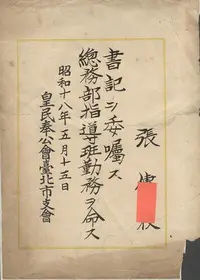 張
書記ヲ委囑ス
總務部指導班勤務ヲ命ス
昭和十八年五月十五日
皇民奉公會臺北市支會